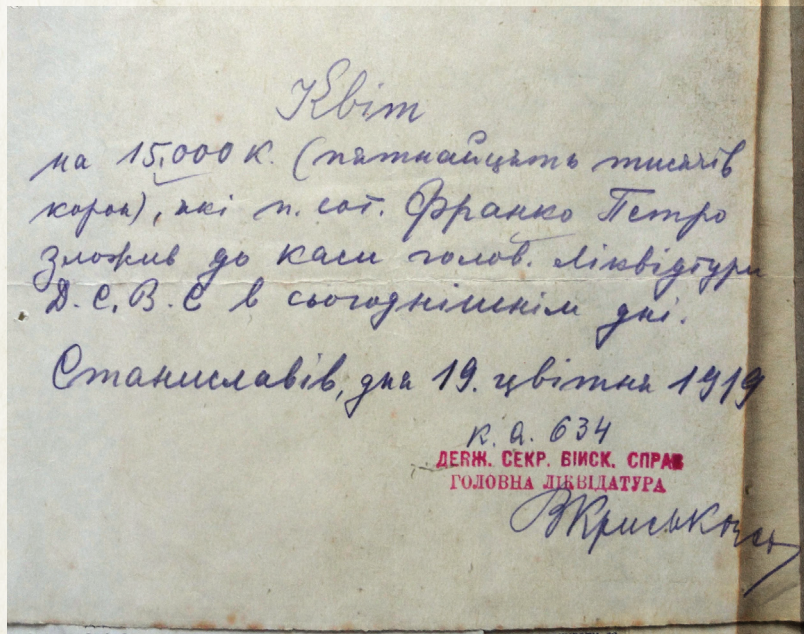 Квіт
на 15.000 К. (пятнайцять тисячів
корон), які п. сот. Франко Петро
зложив до каси голов. Ліквідтури
Д. С. В. С в сьогоднішнім дні.
Станиславів, дня 19. цвітня 1919
к. а. 634
ДЕРЖ. СЕКР. ВІИСК. СПРАВ
ГОЛОВНА ЛІКВІДАТУРА